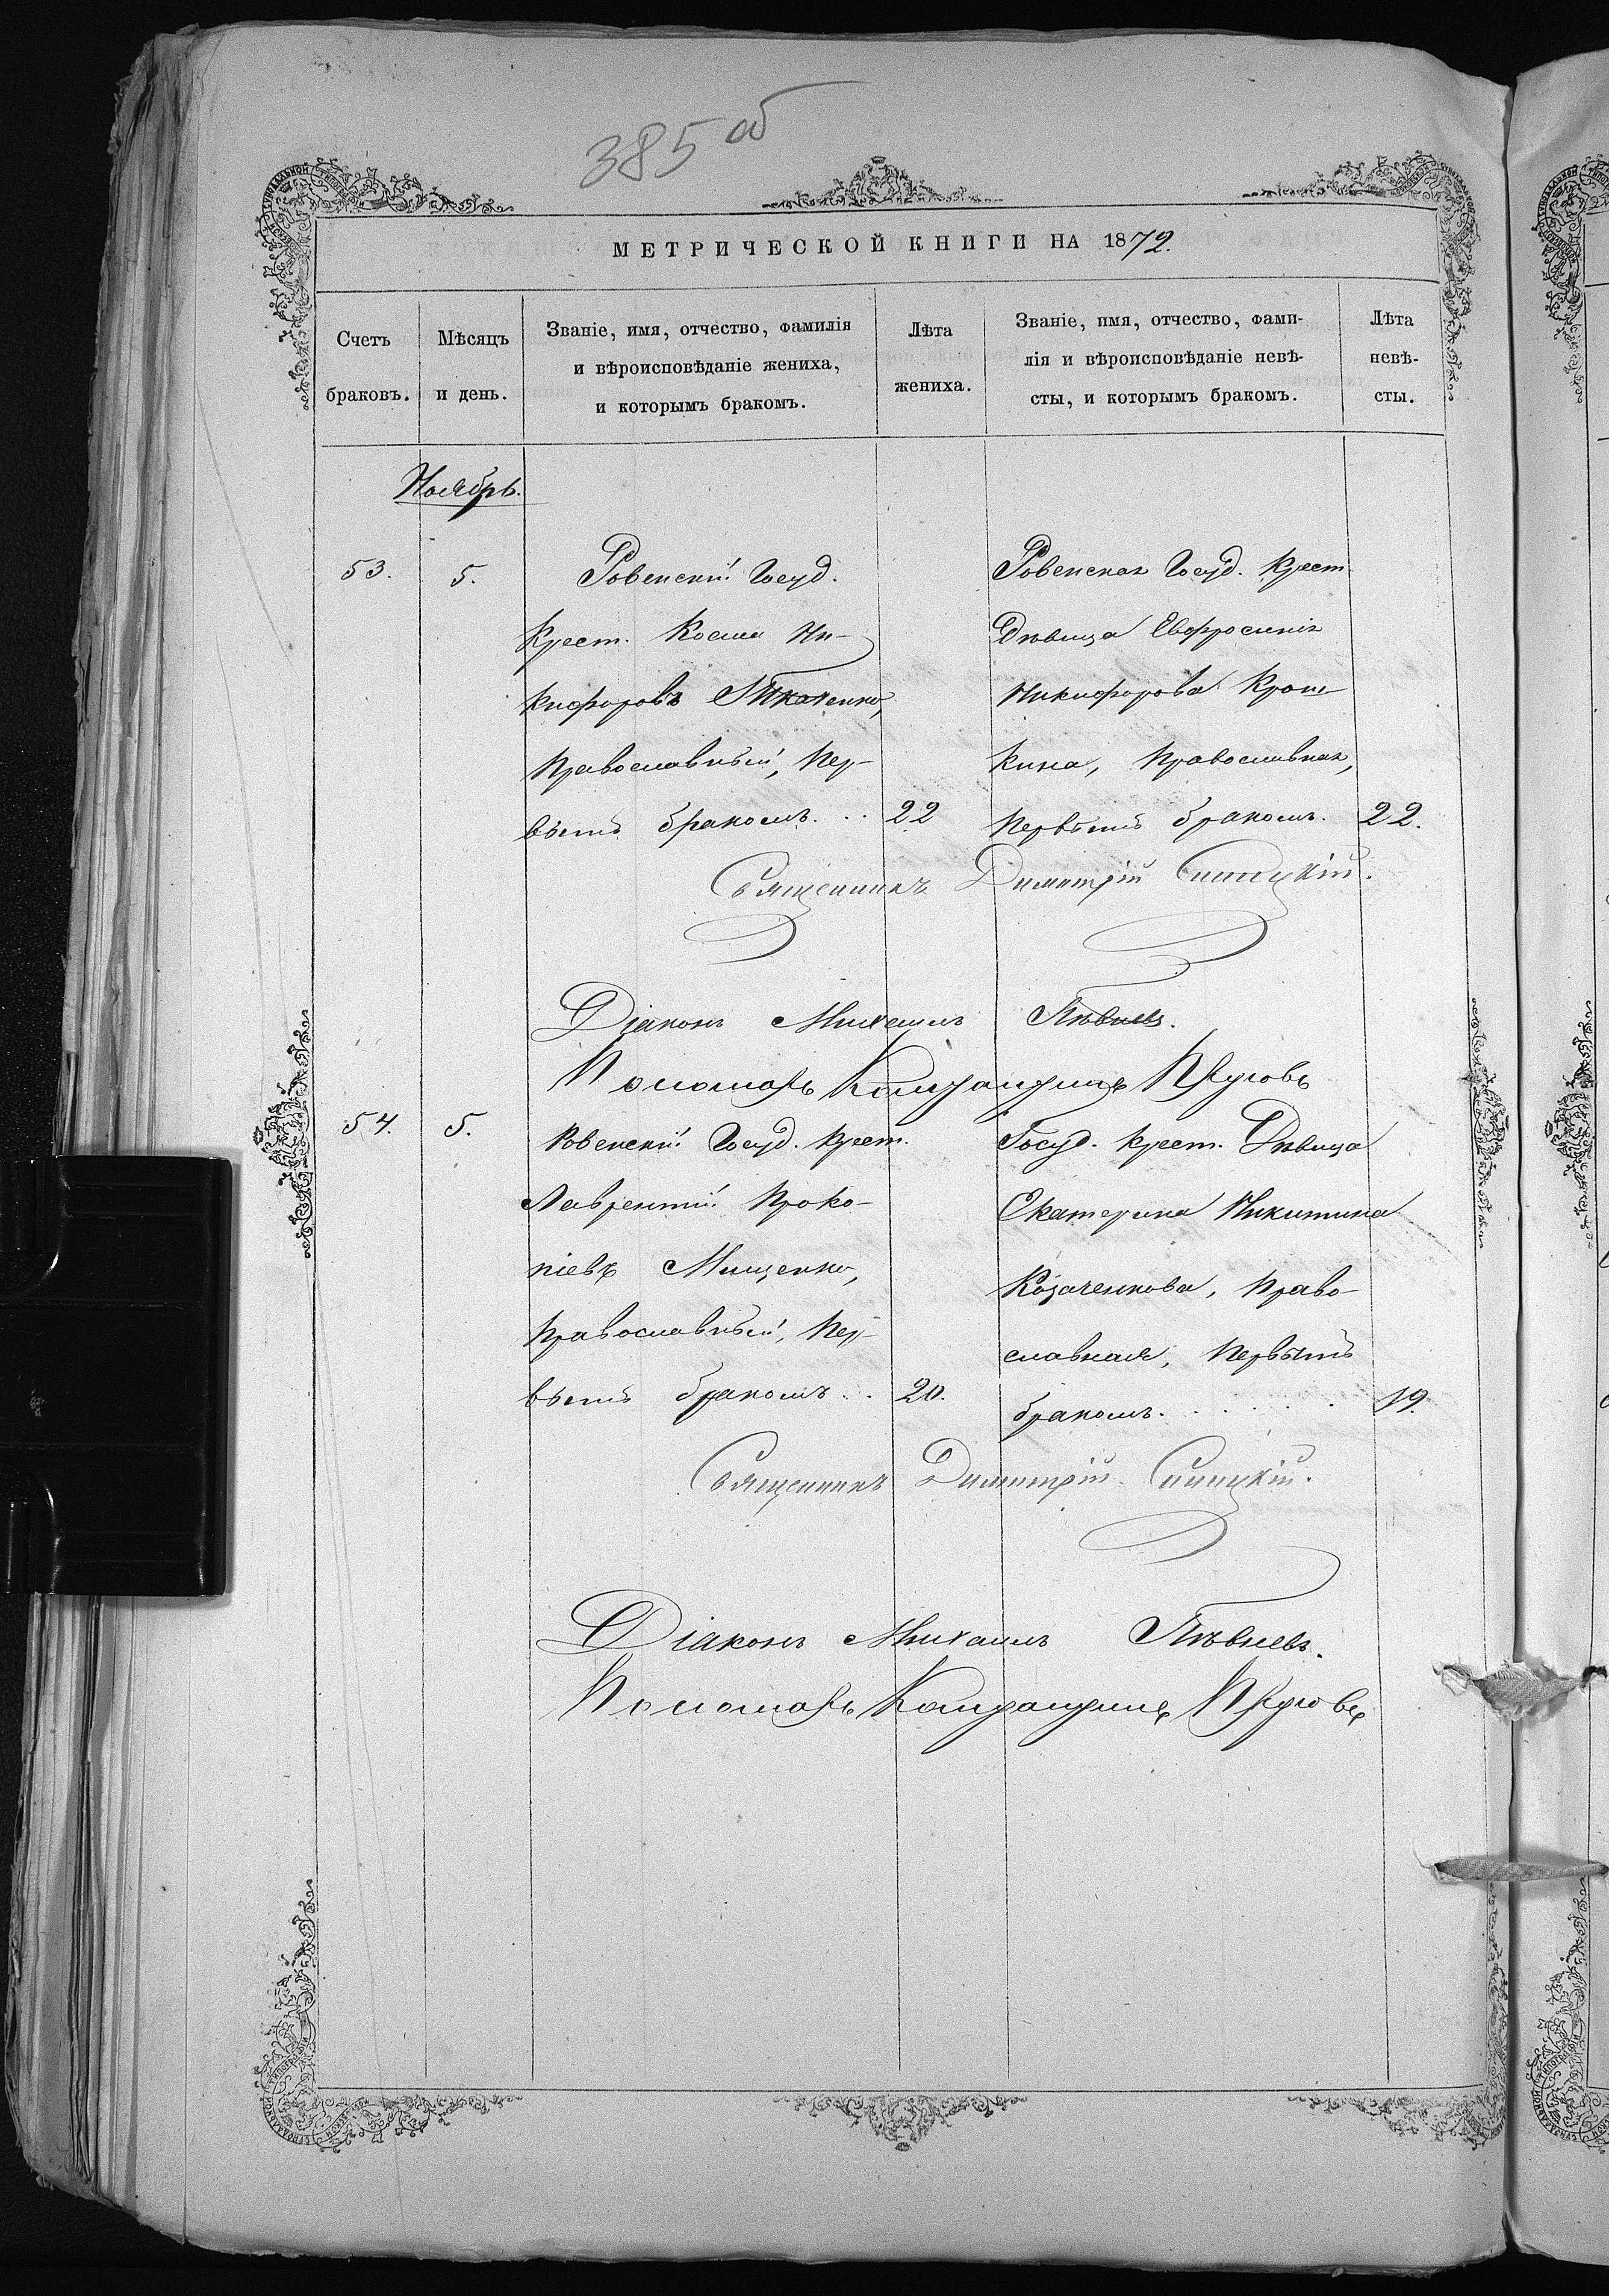 385 об
МЕТРИЧЕСКОЙ КНИГИ НА 1872.
Счетъ браковъ.
Мѣсяцъ и день.
Званіе, имя, отчество, фамилія
и вѣроисповѣданіе жениха,
и которымъ бракомъ.
Лѣта
жениха.
Званіе, имя, отчество, фами-
лія и вѣроисповѣданіе невѣ-
сты, и которымъ бракомъ.
Лѣта
невѣ-
сты.
Ноябрь.
53.
5.
Ровенскій Госуд.
Крест. Косма Ни-
кифоровъ Ткаченко,
Православный, Пер-
вымъ бракомъ...
22
Ровенская Госуд. Крест.
Дѣвица Евфросинія
Никифорова Крош-
кина, Православная,
Первымъ бракомъ.
22.
Священникъ Димитрій Синицкій.
Діаконъ Михаилъ Пѣвневъ.
Пономарь Пругов
54.
5.
Ровенскій Госуд. Крест.
Лаврентій Проко-
піевъ Мищенко,
Православный, Пер-
вымъ бракомъ..
20.
Госуд. крест. Дѣвица
Екатерина Никитина
Козаченкова, Право-
славная, Первымъ
бракомъ......
19.
Священникъ Димитрій Синицкій.
Діаконъ Михаилъ Пѣвневъ.
Пономарь Пругов